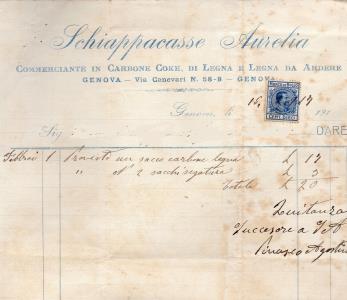 Schiappacasse Aurelia
Commerciante in Carbone Coke, di Legna e Legna da Ardere
GENOVA - Via Canevari N. 58-B - GENOVA
Genova, li 15 17 191
CENT. DIECI
Sig
DARE
1 Provisto un sacco carbone legna £ 17
" N° 2 sacchi segatura £ 3
Totale £ 20
Quitanza
Successore a